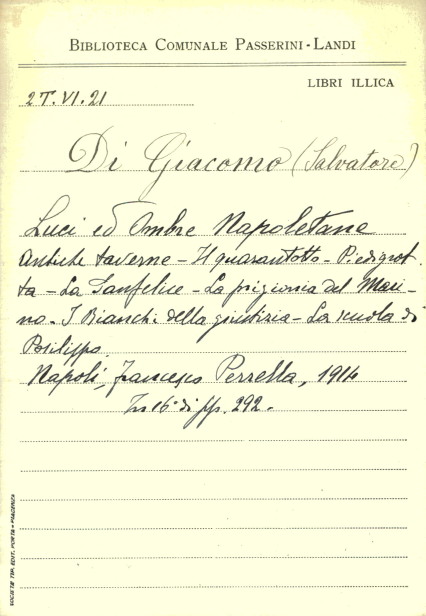 BIBLIOTECA COMUNALE PASSERINI-LANDI
LIBRI ILLICA
2T.VI.21
Di Giacomo (Salvatore)
Luci ed Ombre Napoletane
Antiche taverne - Il quarantotto - Piedigrot
ta - La Sanfelice - La prigionia del Mari-
no - I Bianchi della giustizia - La scuola di
Posilippo.
Napoli, Francesco Perrella, 1914
In 16° di pp. 292.
SOCIETÀ TIP. EDIT. PORTA - PIACENZA